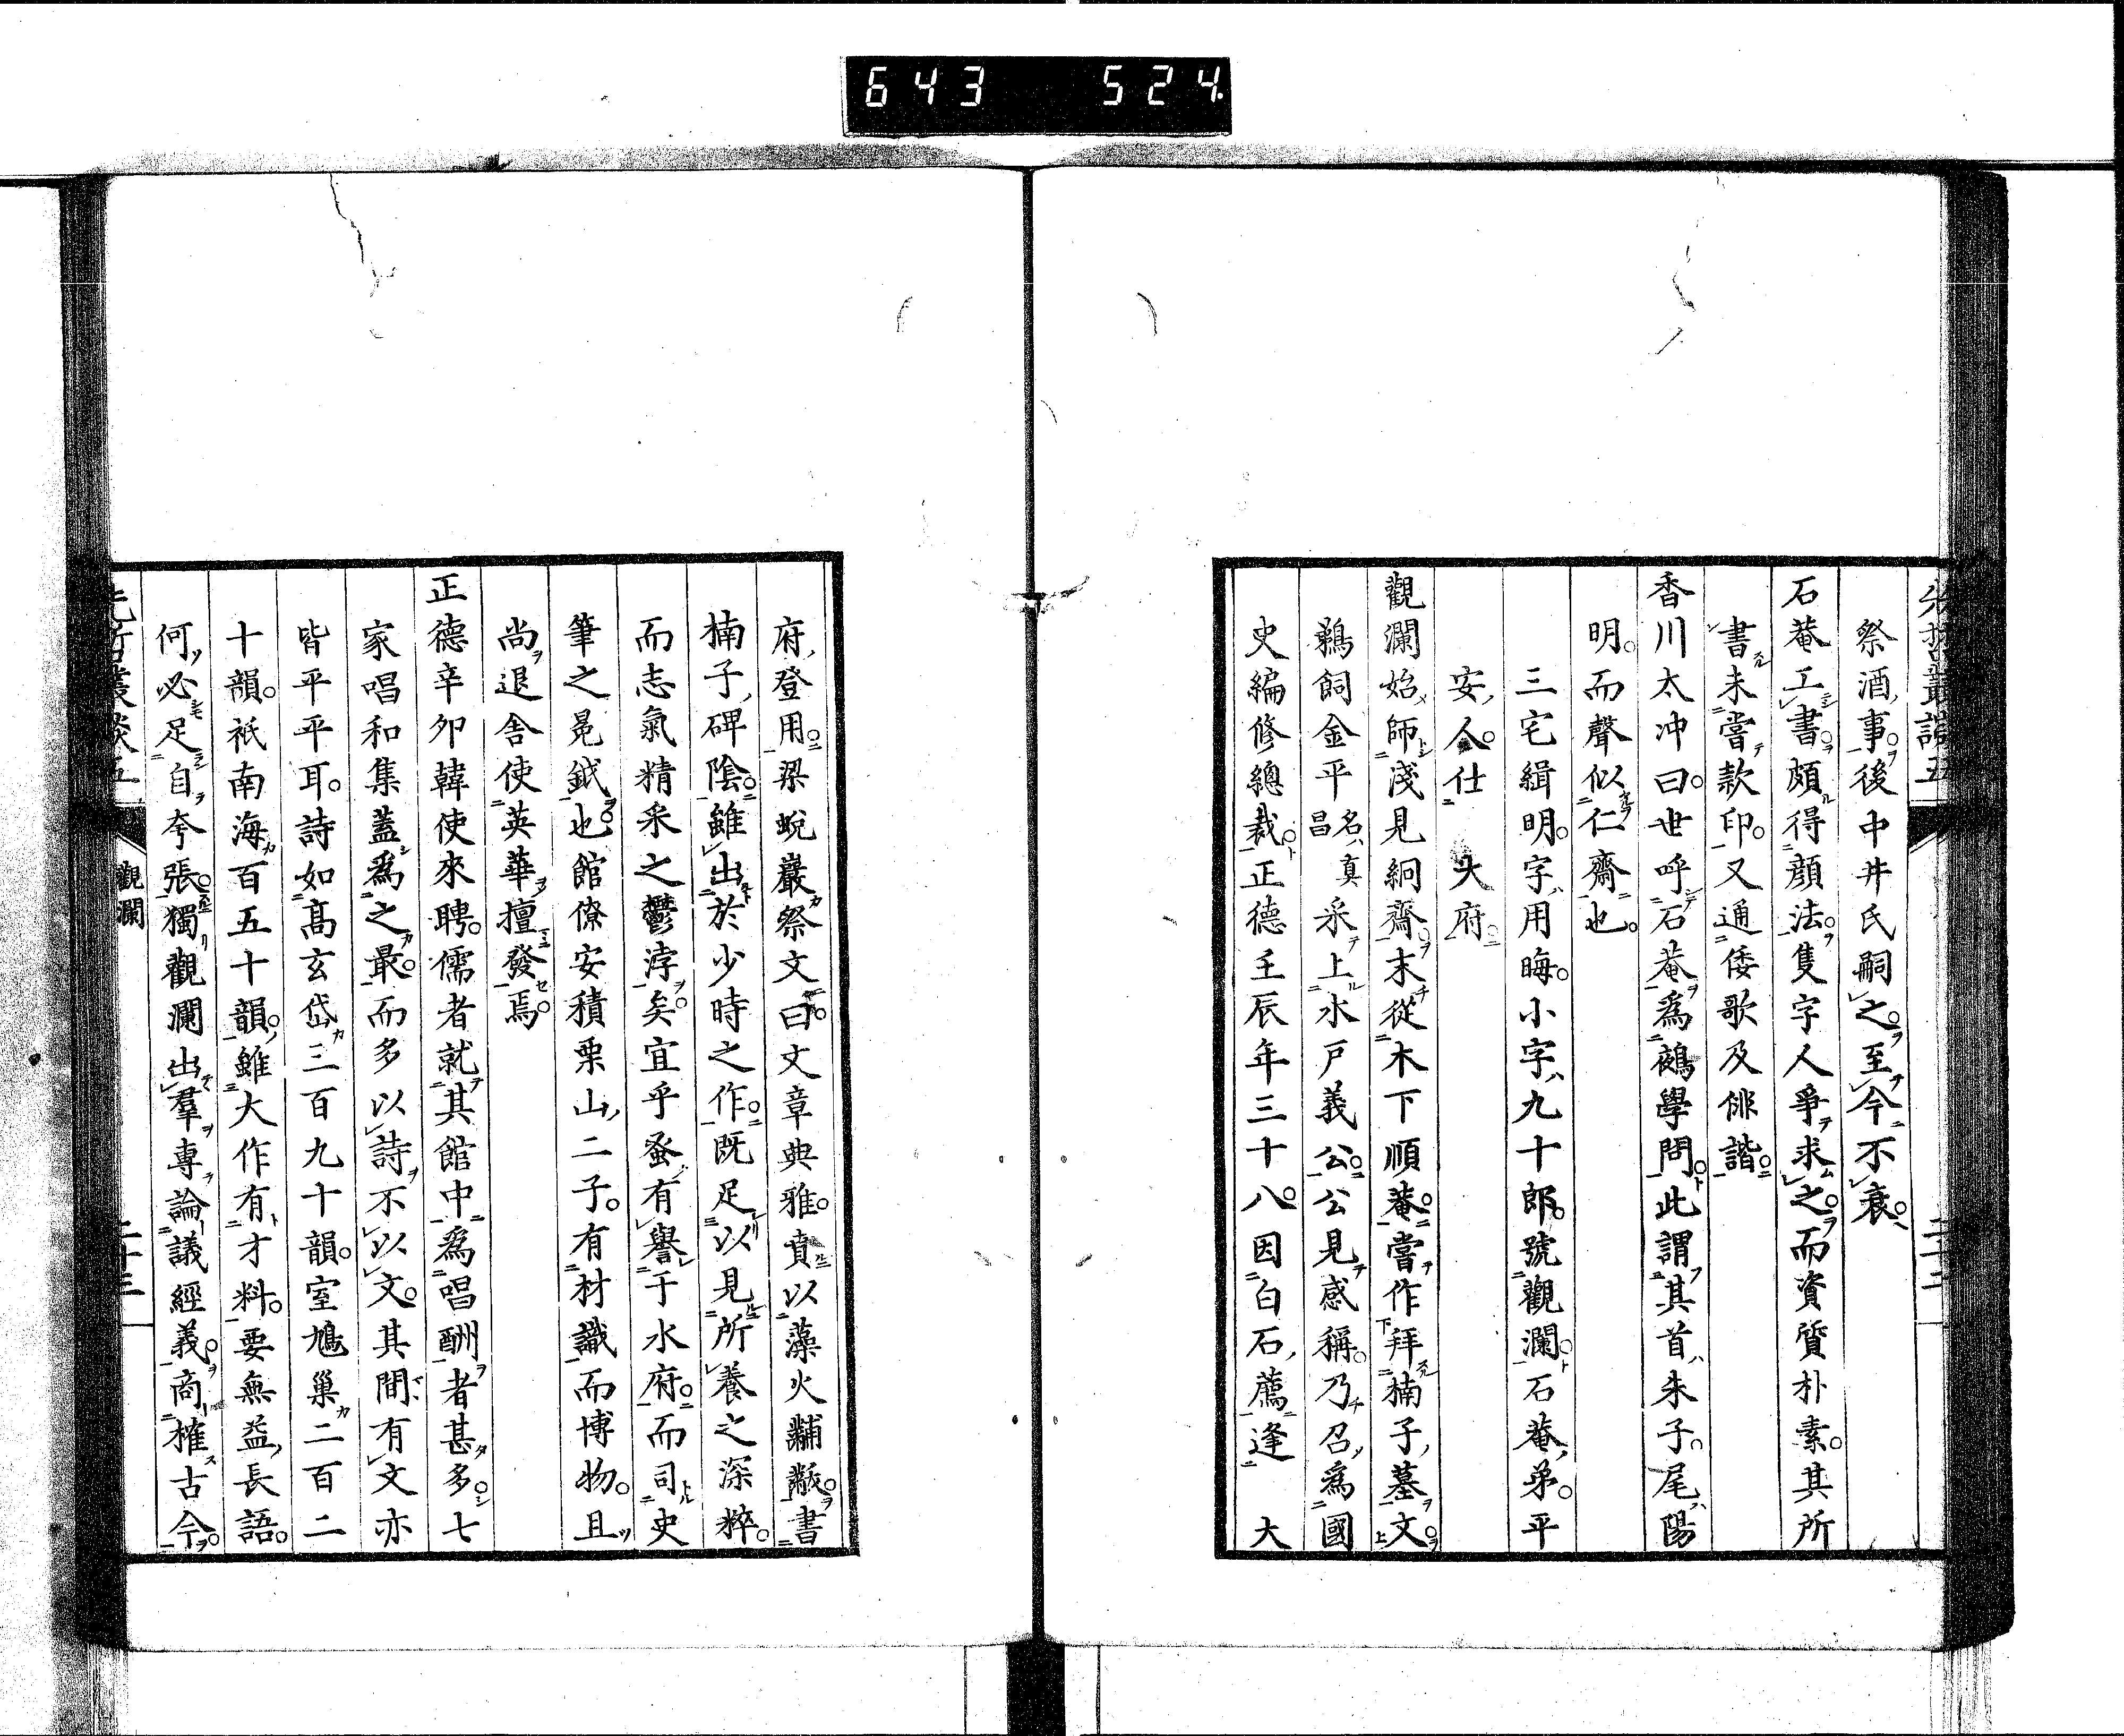 643 524
先哲叢談五 二十二
祭酒事後中井氏嗣之至今不衰
石菴工書頗得顔法隻字人爭求之而資質朴素其所
書未嘗款印又通倭歌及俳諧
香川太冲曰世呼石菴爲鵺學問此謂其首朱子尾陽
明而聲似仁齋也
三宅緝明字用晦小字九十郎號觀瀾石菴弟平
安人仕 大府
觀瀾始師淺見絅齋末從木下順菴嘗作拜楠子墓文
鵜飼金平名眞昌采上水戸義公公見感稱乃召爲國
史編修總裁正德壬辰年三十八因白石薦逢 大
府登用梁蛻巖祭文曰文章典雅賁以藻火黼黻書
楠子碑陰雖出於少時之作既足以見所養之深粹
而志氣精采之鬱浡矣宜乎蚤有譽于水府而司史
筆之冕鉞也館僚安積栗山二子有材識而博物且
尚退舍使英華擅發焉
正德辛卯韓使來聘儒者就其館中爲唱酬者甚多七
家唱和集蓋爲之最而多以詩不以文其間有文亦
皆平平耳詩如髙玄岱三百九十韻室鳩巢二百二
十韻祇南海百五十韻雖大作有才料要無益長語
何必足自夸張獨觀瀾出羣專論議經義商榷古今
先哲叢談五 觀瀾 二十三